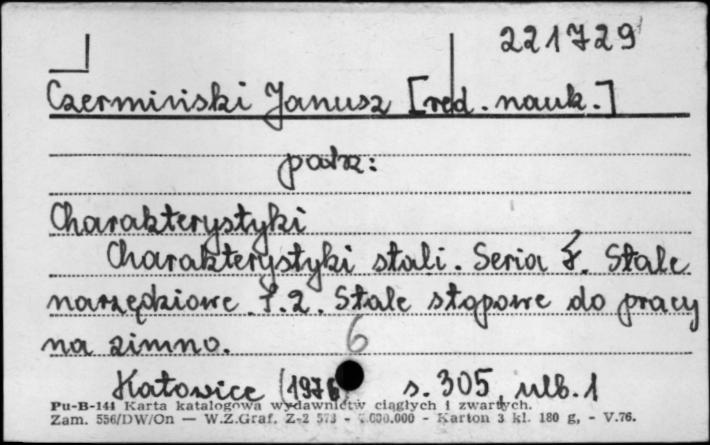 221729
Czermiński Janusz [red. nauk.]
patrz:
Charakterystyki
Charakterystyki stali. Seria F. Stale
narzędziowe. T.2. Stale stopowe do pracy
na zimno.
6
Katowice (1976) s. 305, nlb. 1
Pu-B-144 Karta katalogowa wydawnictw ciągłych i zwartych.
Zam. 556/DW/On — W.Z.Graf. Z-2 573 - .000.000 - Karton 3 kl. 180 g, - V.76.